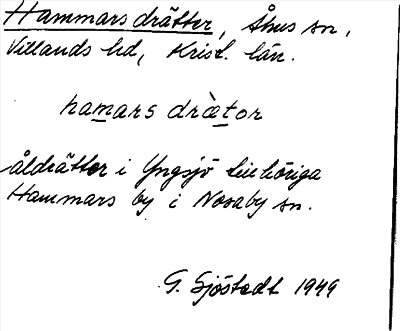 Hammars drätter, Åhus sn,
Villands hd, Krist. län.
hamars drὰtor
åldrätter i Yngsjö tillhöriga
Hammars by i Nosaby sn.
G. Sjöstedt 1949